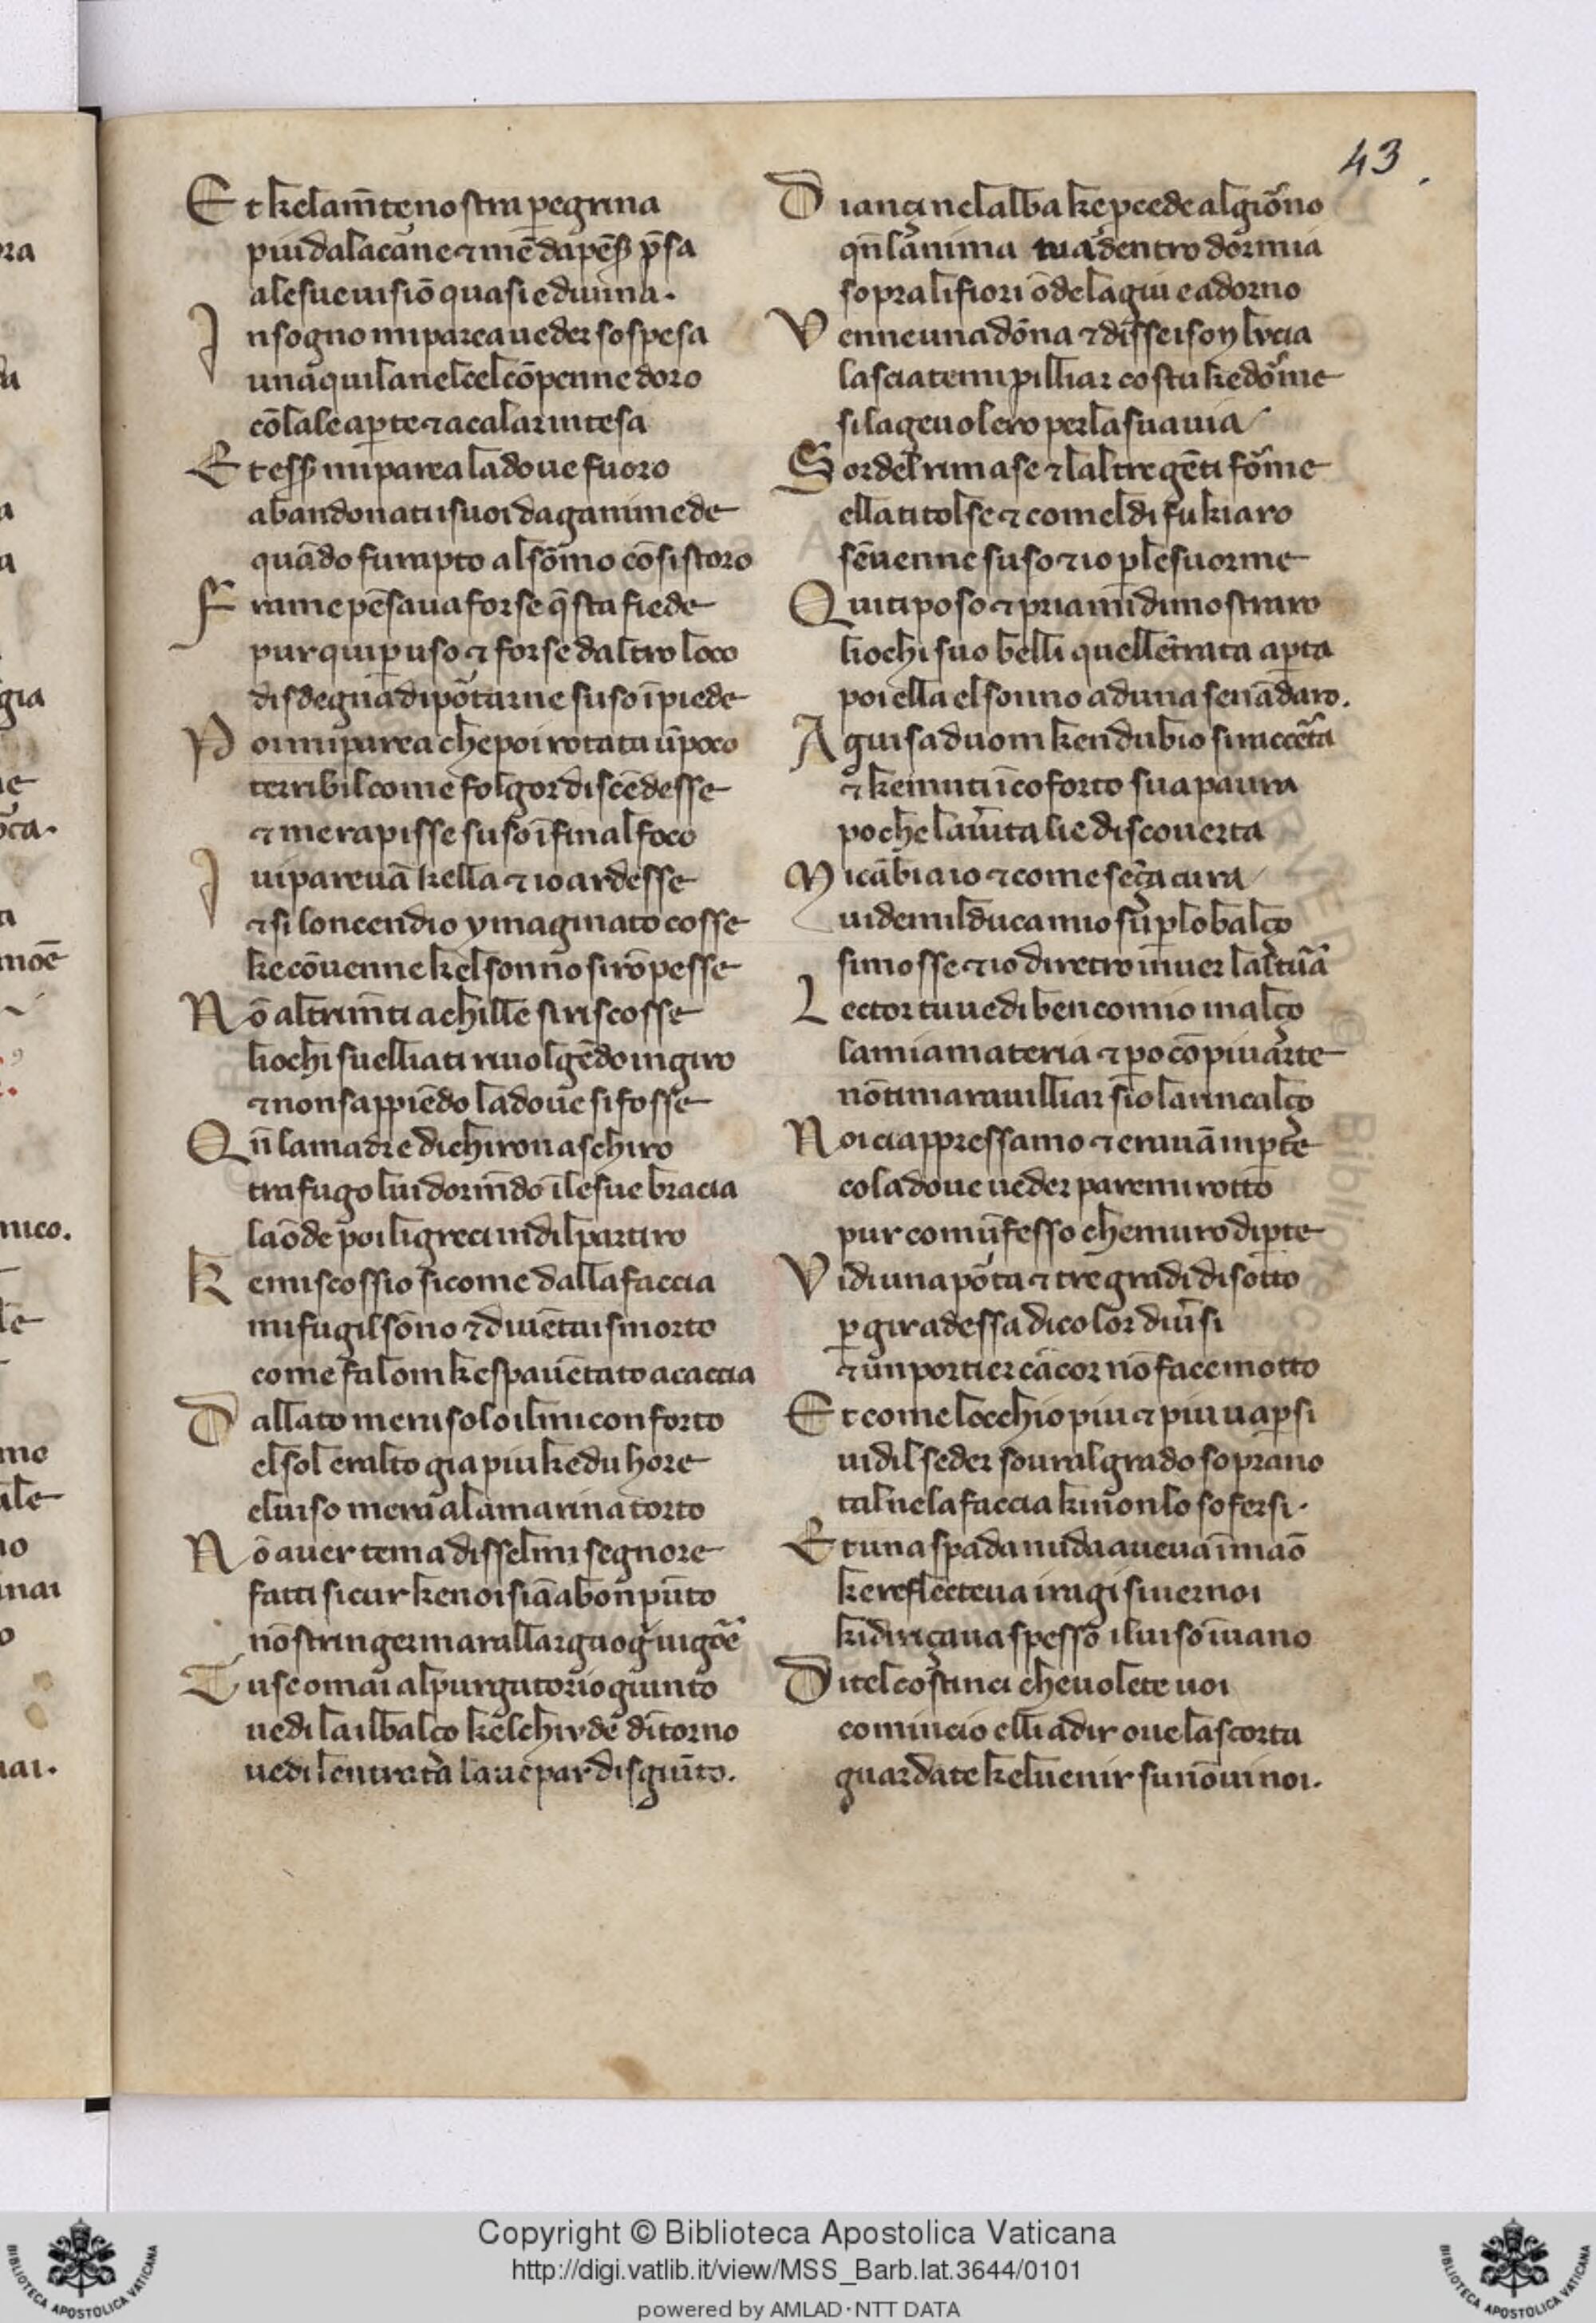 43.
Et kelam̄te nostra pegrina
piu dala carne ⁊ mē da pēs p̄sa
ale sue uisiō quasi e diuina.
In sogno mi parea ueder sospesa
unaquila nel ciel cō penne doro
cō lale aperte ⁊ a calar intesa
Et ess mi parea la doue fuoro
abandonati i suoi da ganimede
quādo fu rapto al sōmo cōsistoro
Fra me pēsaua forse q̄sta fiede
pur qui per uso ⁊ forse daltro loco
disdegna di portarne suso ī piede
Poi mi parea che poi rotata ū poco
terribil come folgor discēdesse
⁊ me rapisse suso īfinal foco
Iui pareuā kella ⁊ io ardesse
⁊ si loncendio ymaginato cosse
ke cōuenne kel sonno si rōpesse
Nō altrim̄ti achille si riscosse
liochi suelliati riuolgēdo in giro
⁊ non sappiēdo la doue si fosse
Qn̄ la madre di chiron a schiro
trafugo lui dorm̄do ī le sue bracia
laōde poi li greci indil partiro
Ke mi scossio si come dalla faccia
mi fugil sōno ⁊ diuētai smorto
come fa lom ke spauētato acaccia
Dallato mera solo il mi conforto
el sol eralto gia piu ke du hore
el uiso mera a la marina torto
Nō auer tema disselmi segnore
fatti sicur ke noi siā a bon pūto
nō stringer ma rallarga ogni uigore
Tuse omai al purgatorio giunto
uedi la il balço kel chiude dītorno
uedi lentrata laue par disgiūto.
Diançi nelalba ke pcede al giorno
qn̄ lanima tua dentro dormia
sopra li fiori ōde lagiu e adorno
Venne una dōna ⁊ disse i son lucia
lasciatemi pilliar costui ke dorme
si lageuolero per la sua uia
Sordel rimase ⁊ laltre gēti forme
ella ti tolse ⁊ comel di fu kiaro
sē uenne suso ⁊ io p le suorme
Qui ti poso ⁊ pria mi dimostraro
liochi suo belli quellētrata aperta
poi ella el sonno ad una se nādaro.
A guisa duom ken dubio si raccerta
⁊ ke muti ī coforto sua paura
po che la uerita lie discouerta
Mi cābiaio ⁊ come seça cura
uidemil duca mio su p lo balço
si mosse ⁊ io diretro inuer laltura
Lector tu uedi ben comio inalço
la mia materia ⁊ po cō piu arte
nō ti marauilliar sio la rincalço
Noi ci appressamo ⁊ erauā in parte
cola doue ueder paremi rotto
pur comū fesso che muro diparte
Vidi una porta ⁊ tre gradi di sotto
p gir ad essa di color diuersi
⁊ un portier cācor nō facea motto
Et come locchio piu ⁊ piu uapersi
uidil seder soural grado soprano
tal ne la faccia kinonlo sofersi.
Et una spada nuda aueua ī maō
ke reflecteua i ragi si uer noi
kidriçaua spesso il uiso ī uano
Ditel costinci che uolete uoi
comincio elli a dir oue la scorta
guardate kel uenir su nō ui noi.
Copyright © Biblioteca Apostolica Vaticana
http://digi.vatlib.it/view/MSS_Barb.lat.3644/0101
powered by AMLAD·NTT DATA